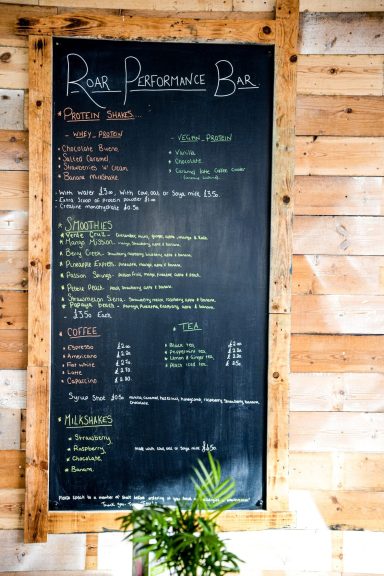 Roar Performance Bar
Protein Shakes...
- Whey Protein
Chocolate Bueno
Salted Caramel
Strawberries n' Cream
Banana Milkshake
- Vegan Protein
Vanilla
Chocolate
- With water £3.00, With cow, oat or Soya milk £3.50
- Extra Scoop of protein powder £1.00
- Creatine monohydrate £0.50
Smoothies
Verde Cruz - Cucumber, mint, ginger, mango & kale
Mango Mission - mango, Strawberry, apple & banana.
Berry Creek - Strawberry, raspberry, blackberry, apple & banana.
Pineapple Express - Pineapple, mango, apple & banana.
Passion Springs - Passion fruit, mango, pineapple, apple & peach.
Pebble Peach - Peach, Strawberry, apple & banana.
Strawmelon Sierra - Strawberry, melon, raspberry, apple & banana.
Papaya beach - Papaya, Pineapple, Raspberry, apple & banana.
- £3.50 Each
Coffee
Espresso £2.00
Americano £2.20
Flat white
Latte
Capaccino £2.80
Tea
Black tea
Peppermint tea
Lemon & Ginger tea
Peach iced tea
Syrup Shot £0.50 vanilla, Caramel, hazelnut, honeycomb, raspberry, Strawberry, banana,
chocolate.
Milkshakes
Strawberry
Raspberry
Chocolate
Banana
Made with cow, oat or soya milk
Please speak to a member of staff before ordering if you have
Thank you, Team